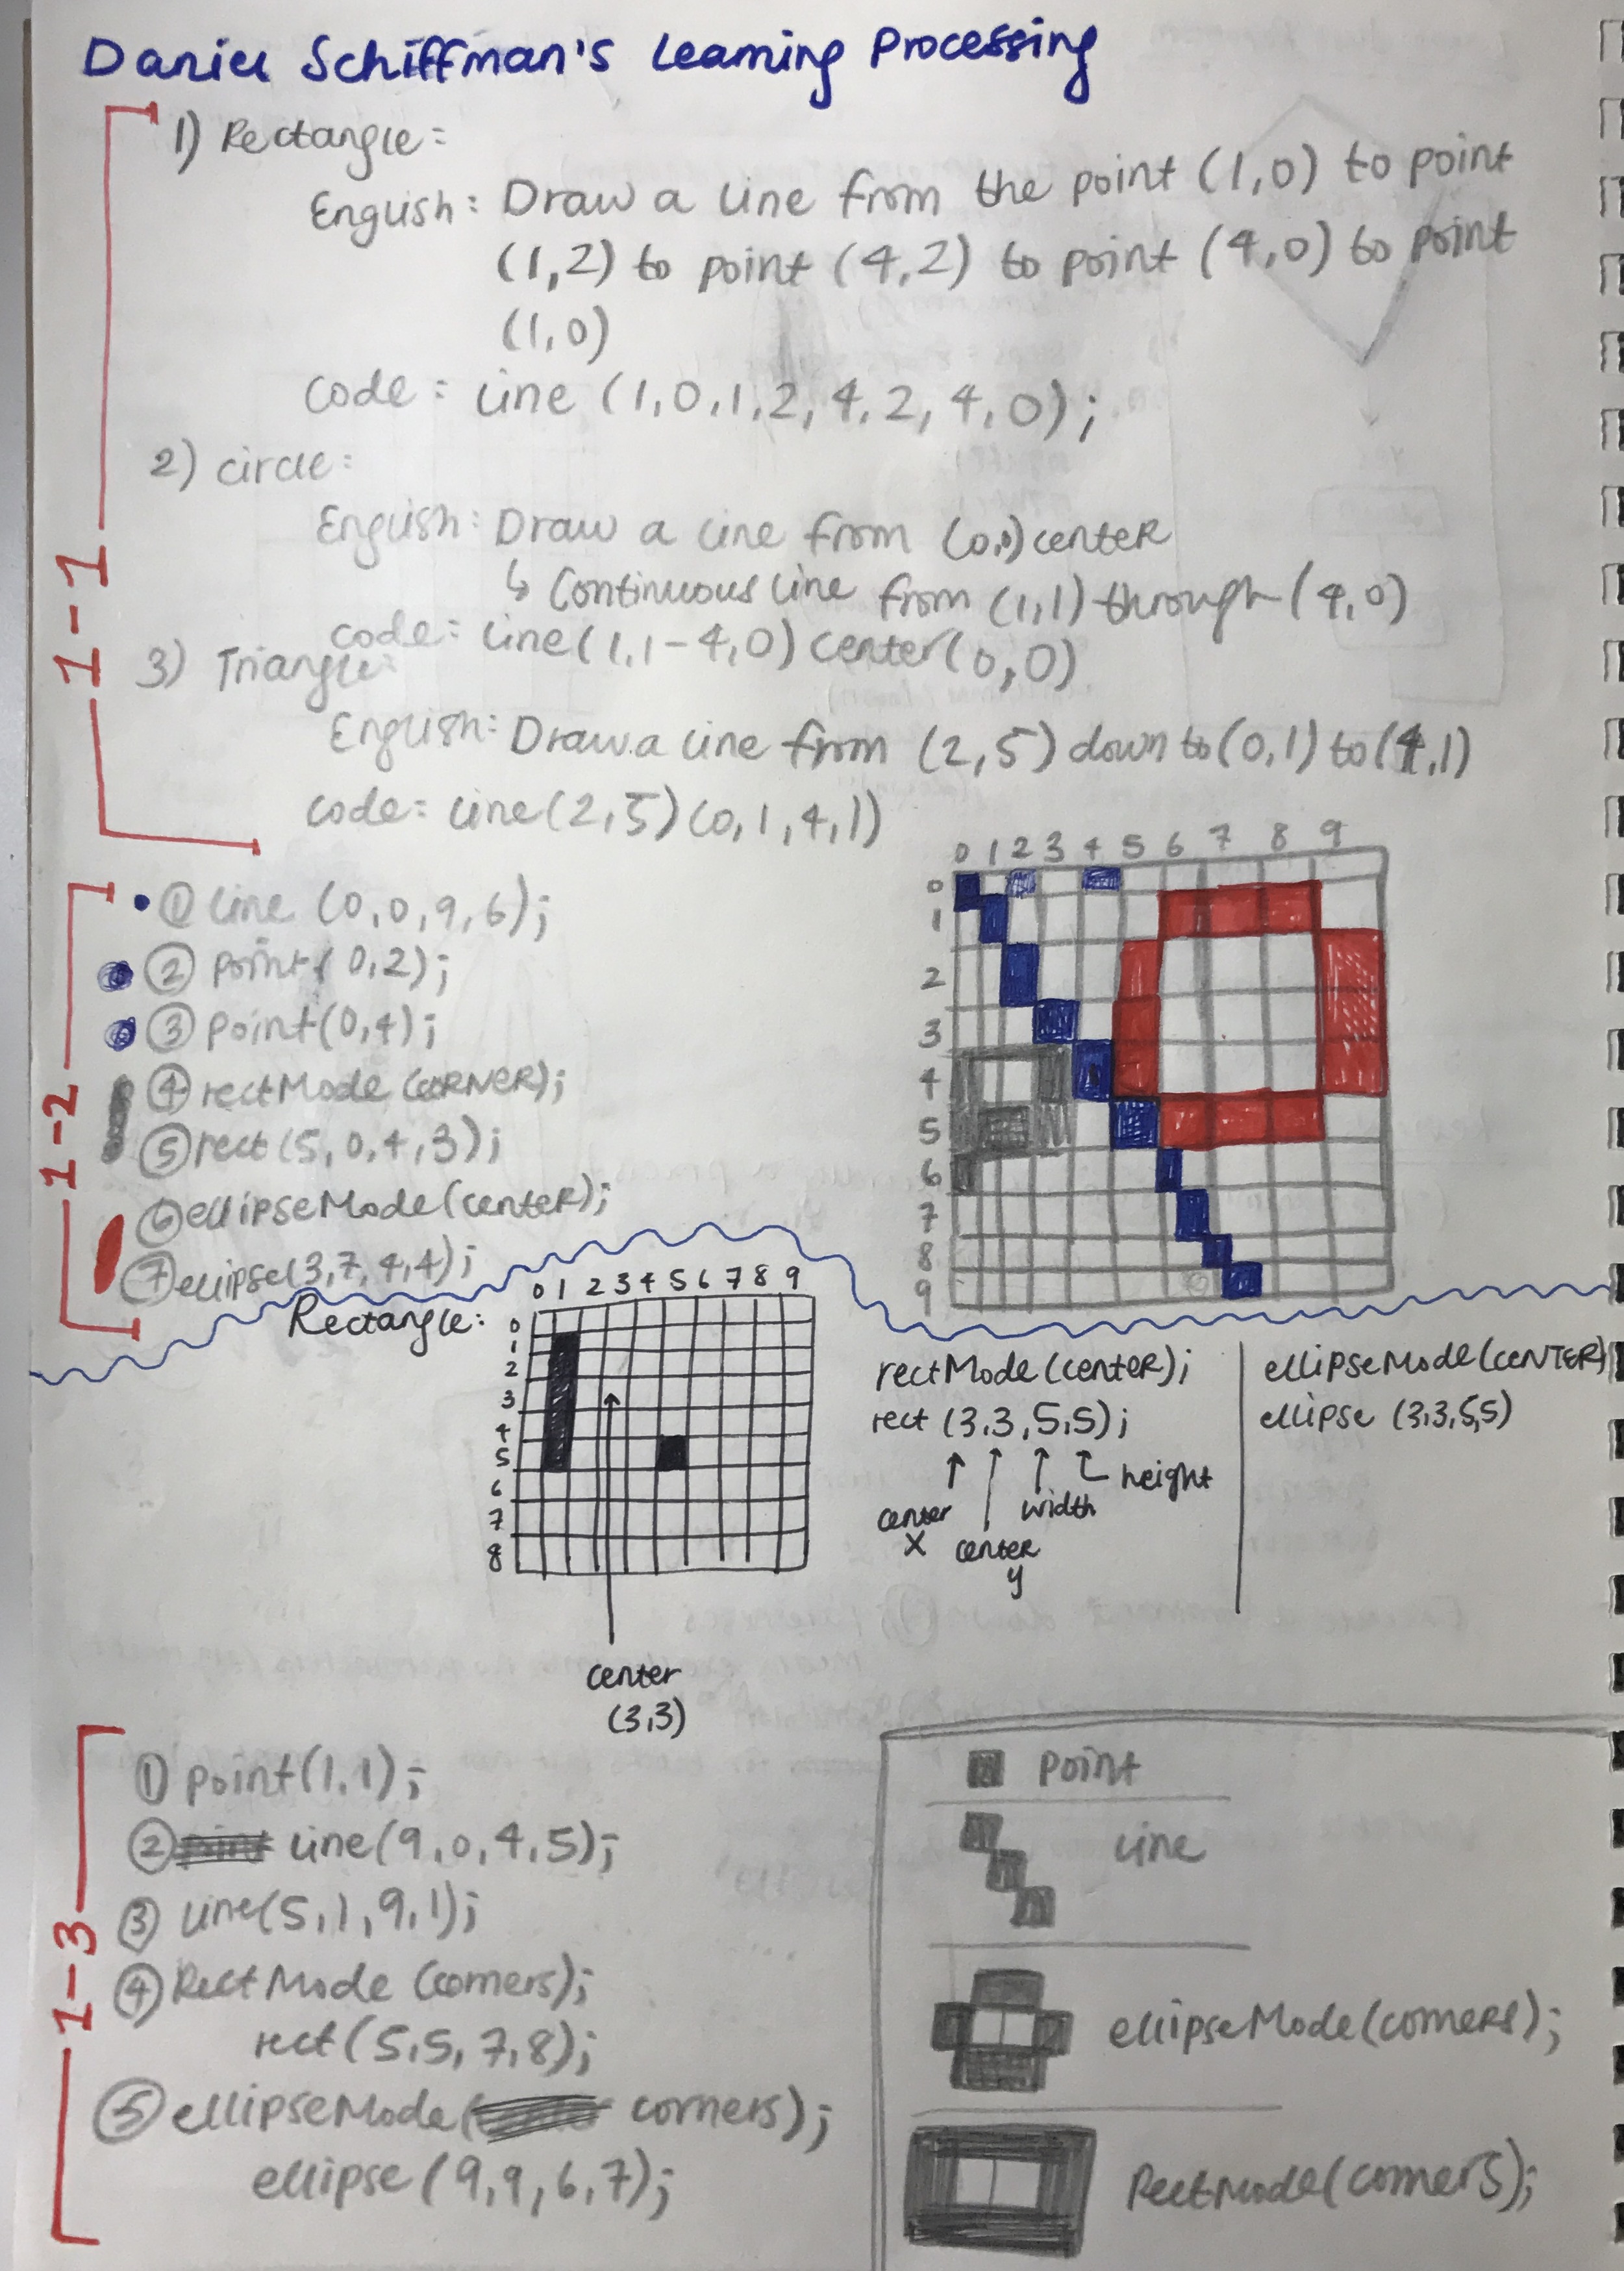 Daniel Schiffman's Learning Processing
1) Rectangle:
English: Draw a line from the point (1,0) to point
(1,2) to point (4,2) to point (4,0) to point
(1,0)
code: line (1,0,1,2,4,2,4,0);
2) circle:
English: Draw a line from (0,0) center
↳ Continuous line from (1,1) through (4,0)
code: line(1,1-4,0) center(0,0)
3) Triangle:
English: Draw a line from (2,5) down to (0,1) to (4,1)
code: line(2,5)(0,1,4,1)
1-1
0 1 2 3 4 5 6 7 8 9
0
1
2
3
4
5
6
7
8
9
① line (0,0,9,6);
② point(0,2);
③ point(0,4);
④ rectMode (CORNER);
⑤ rect(5,0,4,3);
⑥ ellipseMode(center);
⑦ ellipse(3,7,4,4);
1-2
Rectangle:
0 1 2 3 4 5 6 7 8 9
0
1
2
3
4
5
6
7
8
center
(3,3)
rectMode(center);
rect (3,3,5,5);
height
center
x
width
center
y
ellipseMode(CENTER)
ellipse (3,3,5,5)
① point(1,1);
② line(9,0,4,5);
③ line(5,1,9,1);
④ RectMode (corners);
rect(5,5,7,8);
⑤ ellipseMode( corners);
ellipse (9,9,6,7);
1-3
point
line
ellipseMode(corners);
RectMode(corners);